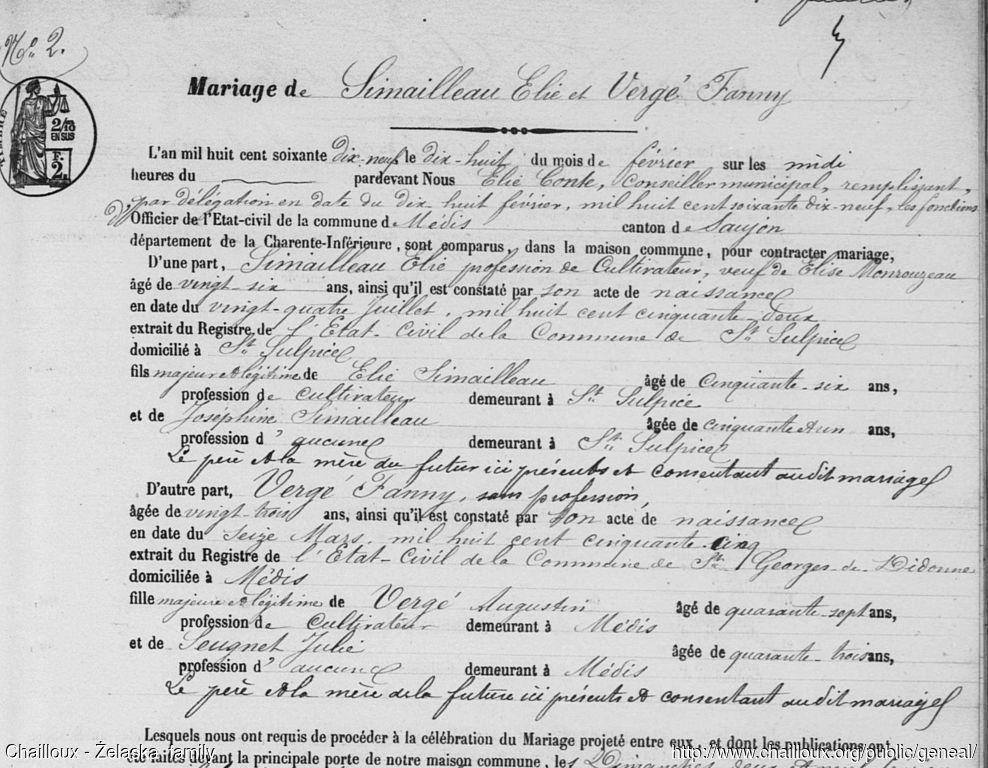 No. 2.
2/10
EN SUS
F.
2.
Mariage de Simailleau Elie et Vergé Fanny
L'an mil huit cent soixante dix-neuf le dix-huit du mois de février sur les midi
heures du pardevant Nous Elie Conte, conseiller municipal, remplissant,
par délégation en date du dix huit février, mil huit cent soixante dix-neuf, les fonctions
d' Officier de l'Etat-civil de la commune d Médis canton de Saujon
département de la Charente-Inférieure, sont comparus, dans la maison commune, pour contracter mariage,
D'une part, Simailleau Elie profession de Cultivateur, veuf de Elise Monrouzeau
âgé de vingt six ans, ainsi qu'il est constaté par son acte de naissance
en date du vingt-quatre Juillet, mil huit cent cinquante-deux
extrait du Registre de l'Etat-Civil de la Commune de St Sulpice
domicilié à St Sulpice
fils majeur et légitime de Elie Simailleau âgé de cinquante-six ans,
profession de cultivateur demeurant à St Sulpice
et de Joséphine Simailleau âgée de cinquante et un ans,
profession d' aucune demeurant à St Sulpice
Le père et la mère du futur ici présents et consentant audit mariage
D'autre part, Vergé Fanny, sans profession,
âgée de vingt-trois ans, ainsi qu'il est constaté par son acte de naissance
en date du seize Mars, mil huit cent cinquante-cinq
extrait du Registre de l'Etat-Civil de la Commune de St Georges-de-Didonne
domiciliée à Médis
fille majeure et légitime de Vergé Augustin âgé de quarante-sept ans,
profession de cultivateur demeurant à Médis
et de Seugnet Julie âgée de quarante-trois ans,
profession d' aucune demeurant à Médis
Le père et la mère de la future ici présents et consentant audit mariage
Lesquels nous ont requis de procéder à la célébration du Mariage projeté entre eux, et dont les publications ont
été faites devant la principale porte de notre maison commune, les Dimanches deux
Chailloux - Żelaska family
http://www.chailloux.org/public/geneal/